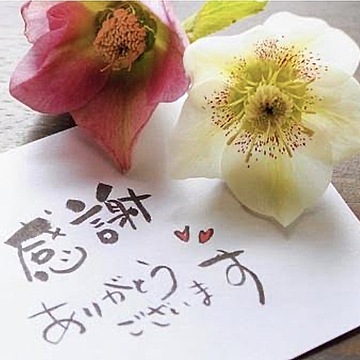 感謝
ありがとう
ございます